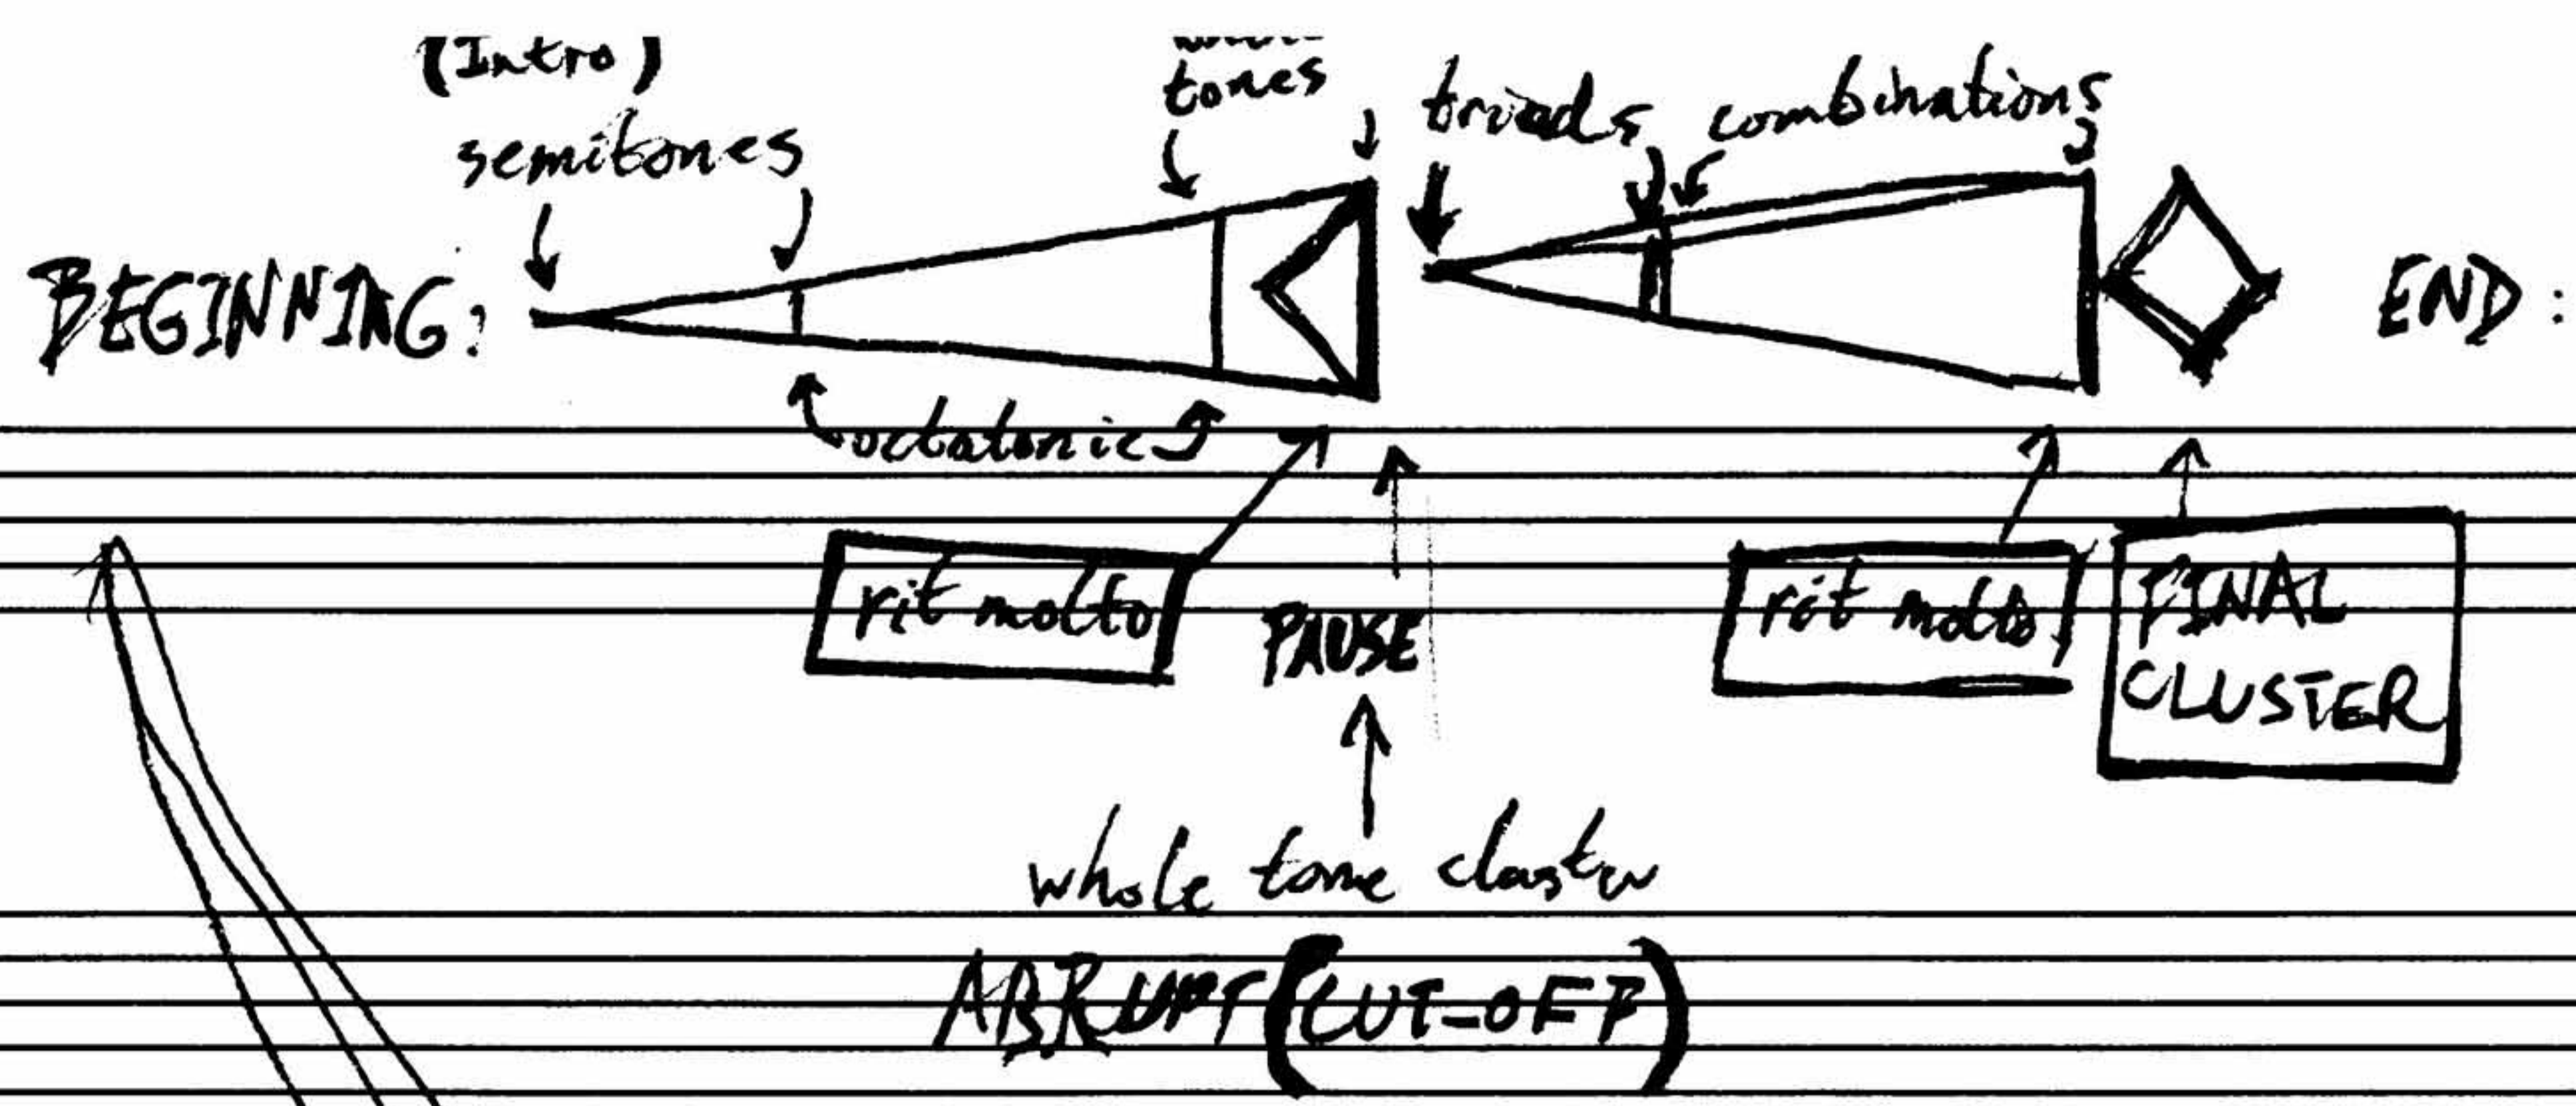 (Intro)
semitones
tones
triads
combinations
BEGINNING:
END:
octatonic
rit molto
PAUSE
rit molto
FINAL
CLUSTER
whole tone cluster
ABRUPT (CUT-OFF)